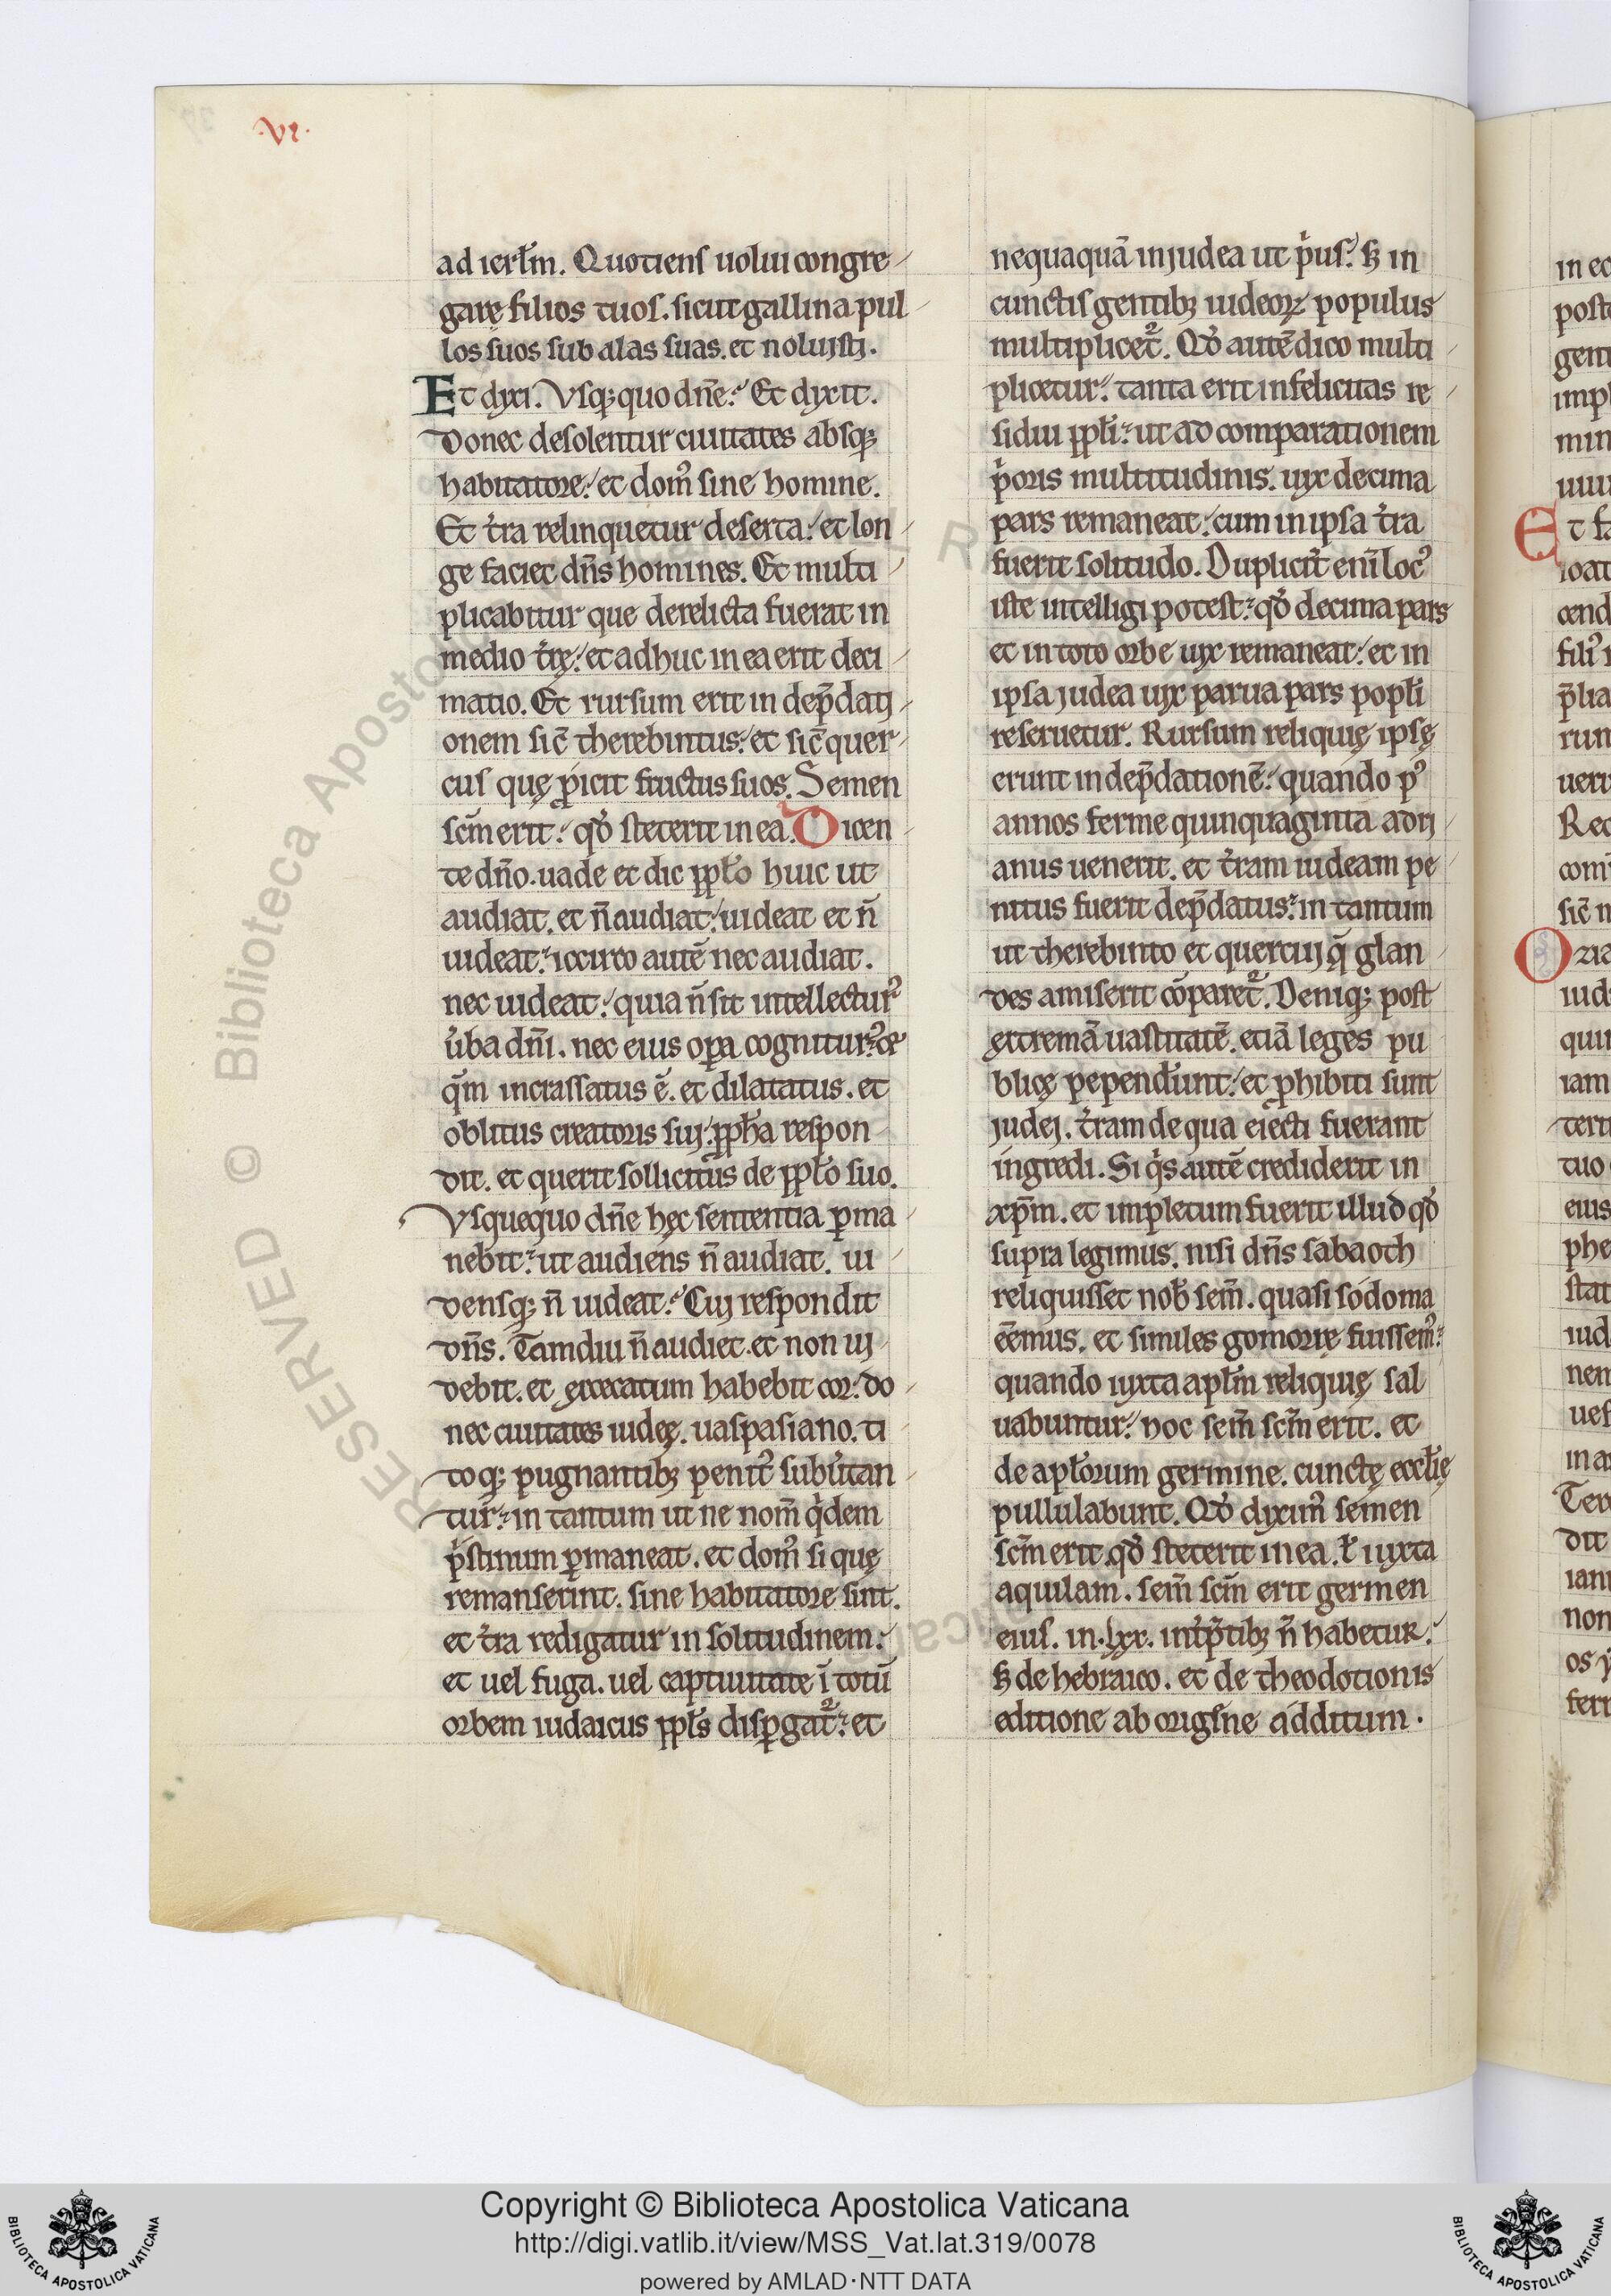 .VI.
ad ierl̄m. Quotiens uolui congre
gare filios tuos. sicut gallina pul
los suos sub alas suas. et noluisti.
Et dyxi. Vsq; quo dn̄e? Et dyxit.
Donec desolentur ciuitates absq;
habitatore. et domꝰ sine homine.
Et t̄ra relinquetur deserta. et lon
ge faciet dn̄s homines. Et multi
plicabitur que derelicta fuerat in
medio t̄rę. et adhuc in ea erit deci
matio. Et rursum erit in dep̄dati
onem sic̄ therebintus. et sic̄ quer
cus quę ꝓicit fructus suos. Semen
scm̄ erit. qđ steterit in ea. Dicen
te dn̄o. uade et dic ppl̄o huic ut
audiat. et n̄ audiat. uideat et n̄
uideat. iccirco autē nec audiat.
nec uideat. quia n̄ sit intellecturꝰ
ūba dn̄i. nec eius oꝑa cogniturꝰ. 
qm̄ incrassatus ē. et dilatatus. et
oblitus creatoris sui. ppħa respon
dit. et querit sollicitus de ppl̄o suo.
Vsquequo dn̄e hęc sententia ꝑma
nebit. ut audiens n̄ audiat. ui
densq; n̄ uideat? Cui respondit
dn̄s. Tamdiu n̄ audiet. et non ui
debit. et excecatum habebit cor. do
nec ciuitates iudeę. uaspasiano. ti
toq; pugnantibꝫ penitꝰ subūtan
tur. in tantum ut ne nom̄ qͥdem
pͥstinum ꝑmaneat. et domꝰ si quę
remanserint. sine habitatore sint.
et t̄ra redigatur in solitudinem.
et uel fuga. uel captiuitate ī totū
orbem iudaicus ppl̄s disꝑgat᷑. et
nequaquā in iudea ut pͥus. sꝫ in
cunctis gentibꝫ iudeoꝝ populus
multiplicet᷑. Qđ autē dico multi
plicetur. tanta erit infelicitas re
sidui ppl̄i. ut ad comparationem
pͥoris multitudinis. uyx decima
pars remaneat. cum in ipsa t̄ra
fuerit solitudo. Duplicit̄ enī locꝰ
iste intelligi potest. qđ decima pars
et in toto orbe uyx remaneat. et in
ipsa iudea uyx parua pars popl̄i
reseruetur. Rursum reliquię ipsę
erunt in dep̄dationē. quando pꝰ
annos ferme quinquaginta adri
anus uenerit. et t̄ram iudeam pe
nitus fuerit dep̄datus. in tantum
ut therebinto et quercui q̄ glan
des amiserit cōparet᷑. Deniq; post
extremā uastitatē. etiā leges pu
blicę pependunt. et ꝓhibiti sunt
iudei. t̄ram de qua eiecti fuerant
ingredi. Si qͥs autē crediderit in
xp̄m. et impletum fuerit illud qđ
supra legimus. nisi dn̄s sabaoth
reliquisset nob̄ sem̄. quasi sodoma
eēmus. et similes gomorrę fuissemꝰ.
quando iuxta apl̄m reliquię sal
uabuntur. hoc sem̄ scm̄ erit. et
de apl̄orum germine. cunctę eccl̄ię
pullulabunt. Qđ dyximꝰ semen
scm̄ erit qđ steterit in ea. ł iuxta
aquilam. sem̄ scm̄ erit germen
eius. in .lxx. int̄p̄tibꝫ n̄ habetur.
sꝫ de hebraico. et de theodotionis
editione ab origīne additum.
in
post
gent
imp
min
Et fa
filiꝰ
p̄lia
run
ueri
Rec
com
sic̄ n
Ozia
iud
qui
iam
tert
tuo
eius
phe
stat
iud
nem
uest
in a
dit
iani
non
ferr
© Biblioteca Apostolica Vaticana
RESERVED
Copyright © Biblioteca Apostolica Vaticana
http://digi.vatlib.it/view/MSS_Vat.lat.319/0078
powered by AMLAD·NTT DATA
BIBLIOTECA APOSTOLICA VATICANA
BIBLIOTECA APOSTOLICA VATICANA